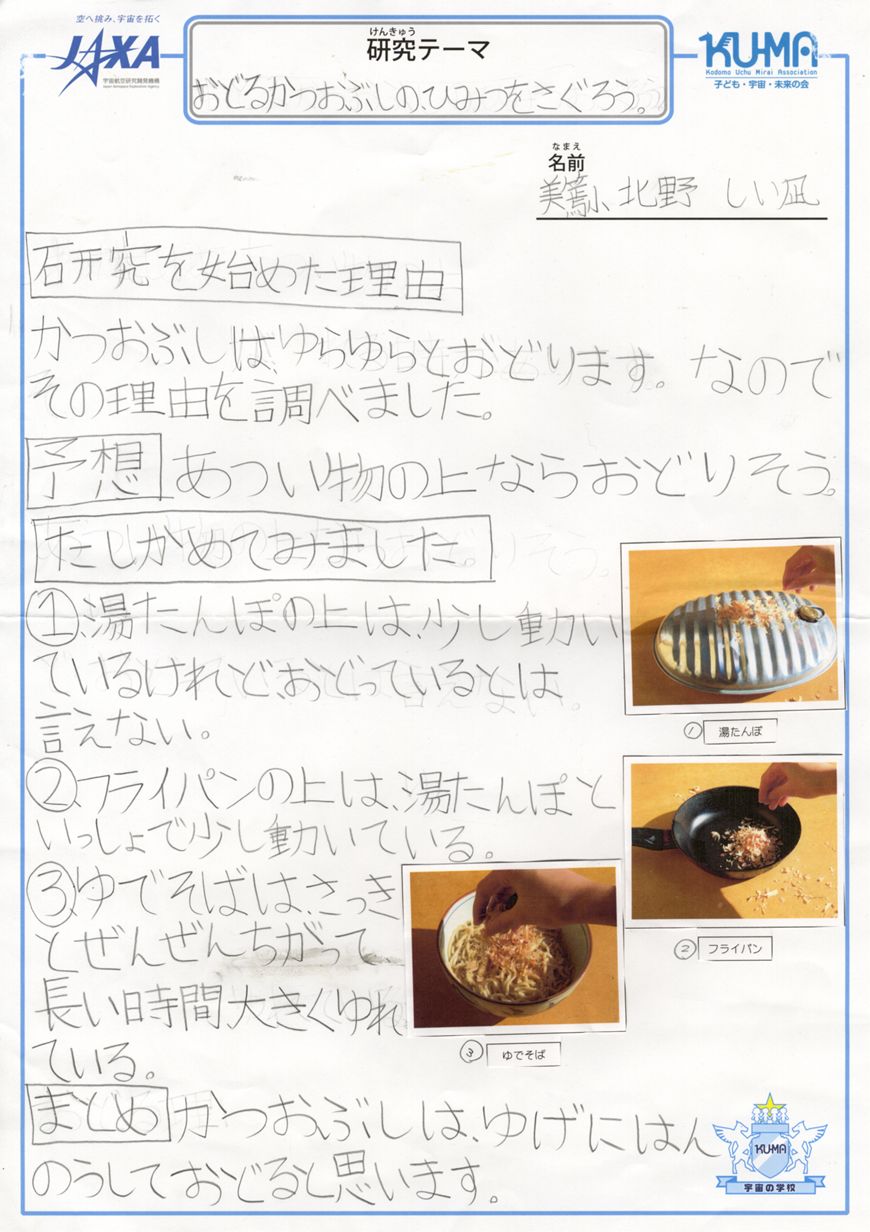 空へ挑み、宇宙を拓く
JAXA
宇宙航空研究開発機構
Japan Aerospace Exploration Agency
けんきゅう
研究テーマ
おどるかつおぶしの、ひみつをさぐろう。
KU-MA
Kodomo Uchu Mirai Association
子ども・宇宙・未来の会
なまえ
名前
美篶小 北野 しい凪
研究を始めた理由
かつおぶしは、ゆらゆらとおどります。なので
その理由を調べました。
予想 あつい物の上ならおどりそう。
たしかめてみました
①湯たんぽの上は、少し動い
ているけれど、おどっているとは
言えない。
① 湯たんぽ
②フライパンの上は、湯たんぽと
いっしょで少し動いている。
② フライパン
③ゆでそばは、さっき
とぜんぜんちがって
長い時間大きくゆれ
ている。
③ ゆでそば
まとめ かつおぶしは、ゆげにはん
のうしておどると思います。
KU-MA
宇宙の学校